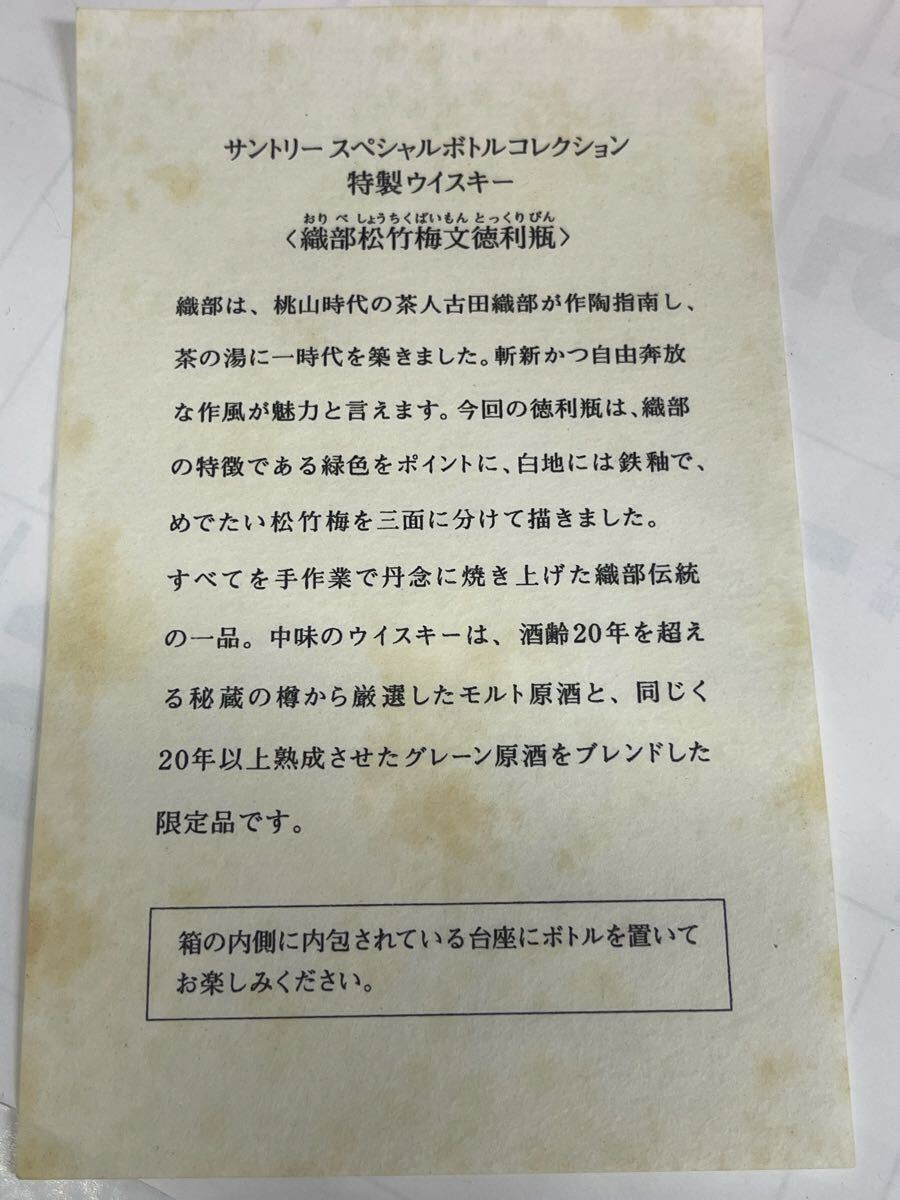 サントリー スペシャルボトルコレクション
特製ウイスキー
おり べ しょうちくばいもん とっくりびん
〈織部松竹梅文徳利瓶〉
織部は、桃山時代の茶人古田織部が作陶指南し、
茶の湯に一時代を築きました。斬新かつ自由奔放
な作風が魅力と言えます。今回の徳利瓶は、織部
の特徴である緑色をポイントに、白地には鉄釉で、
めでたい松竹梅を三面に分けて描きました。
すべてを手作業で丹念に焼き上げた織部伝統
の一品。中味のウイスキーは、酒齢20年を超え
る秘蔵の樽から厳選したモルト原酒と、同じく
20年以上熟成させたグレーン原酒をブレンドした
限定品です。
箱の内側に内包されている台座にボトルを置いて
お楽しみください。